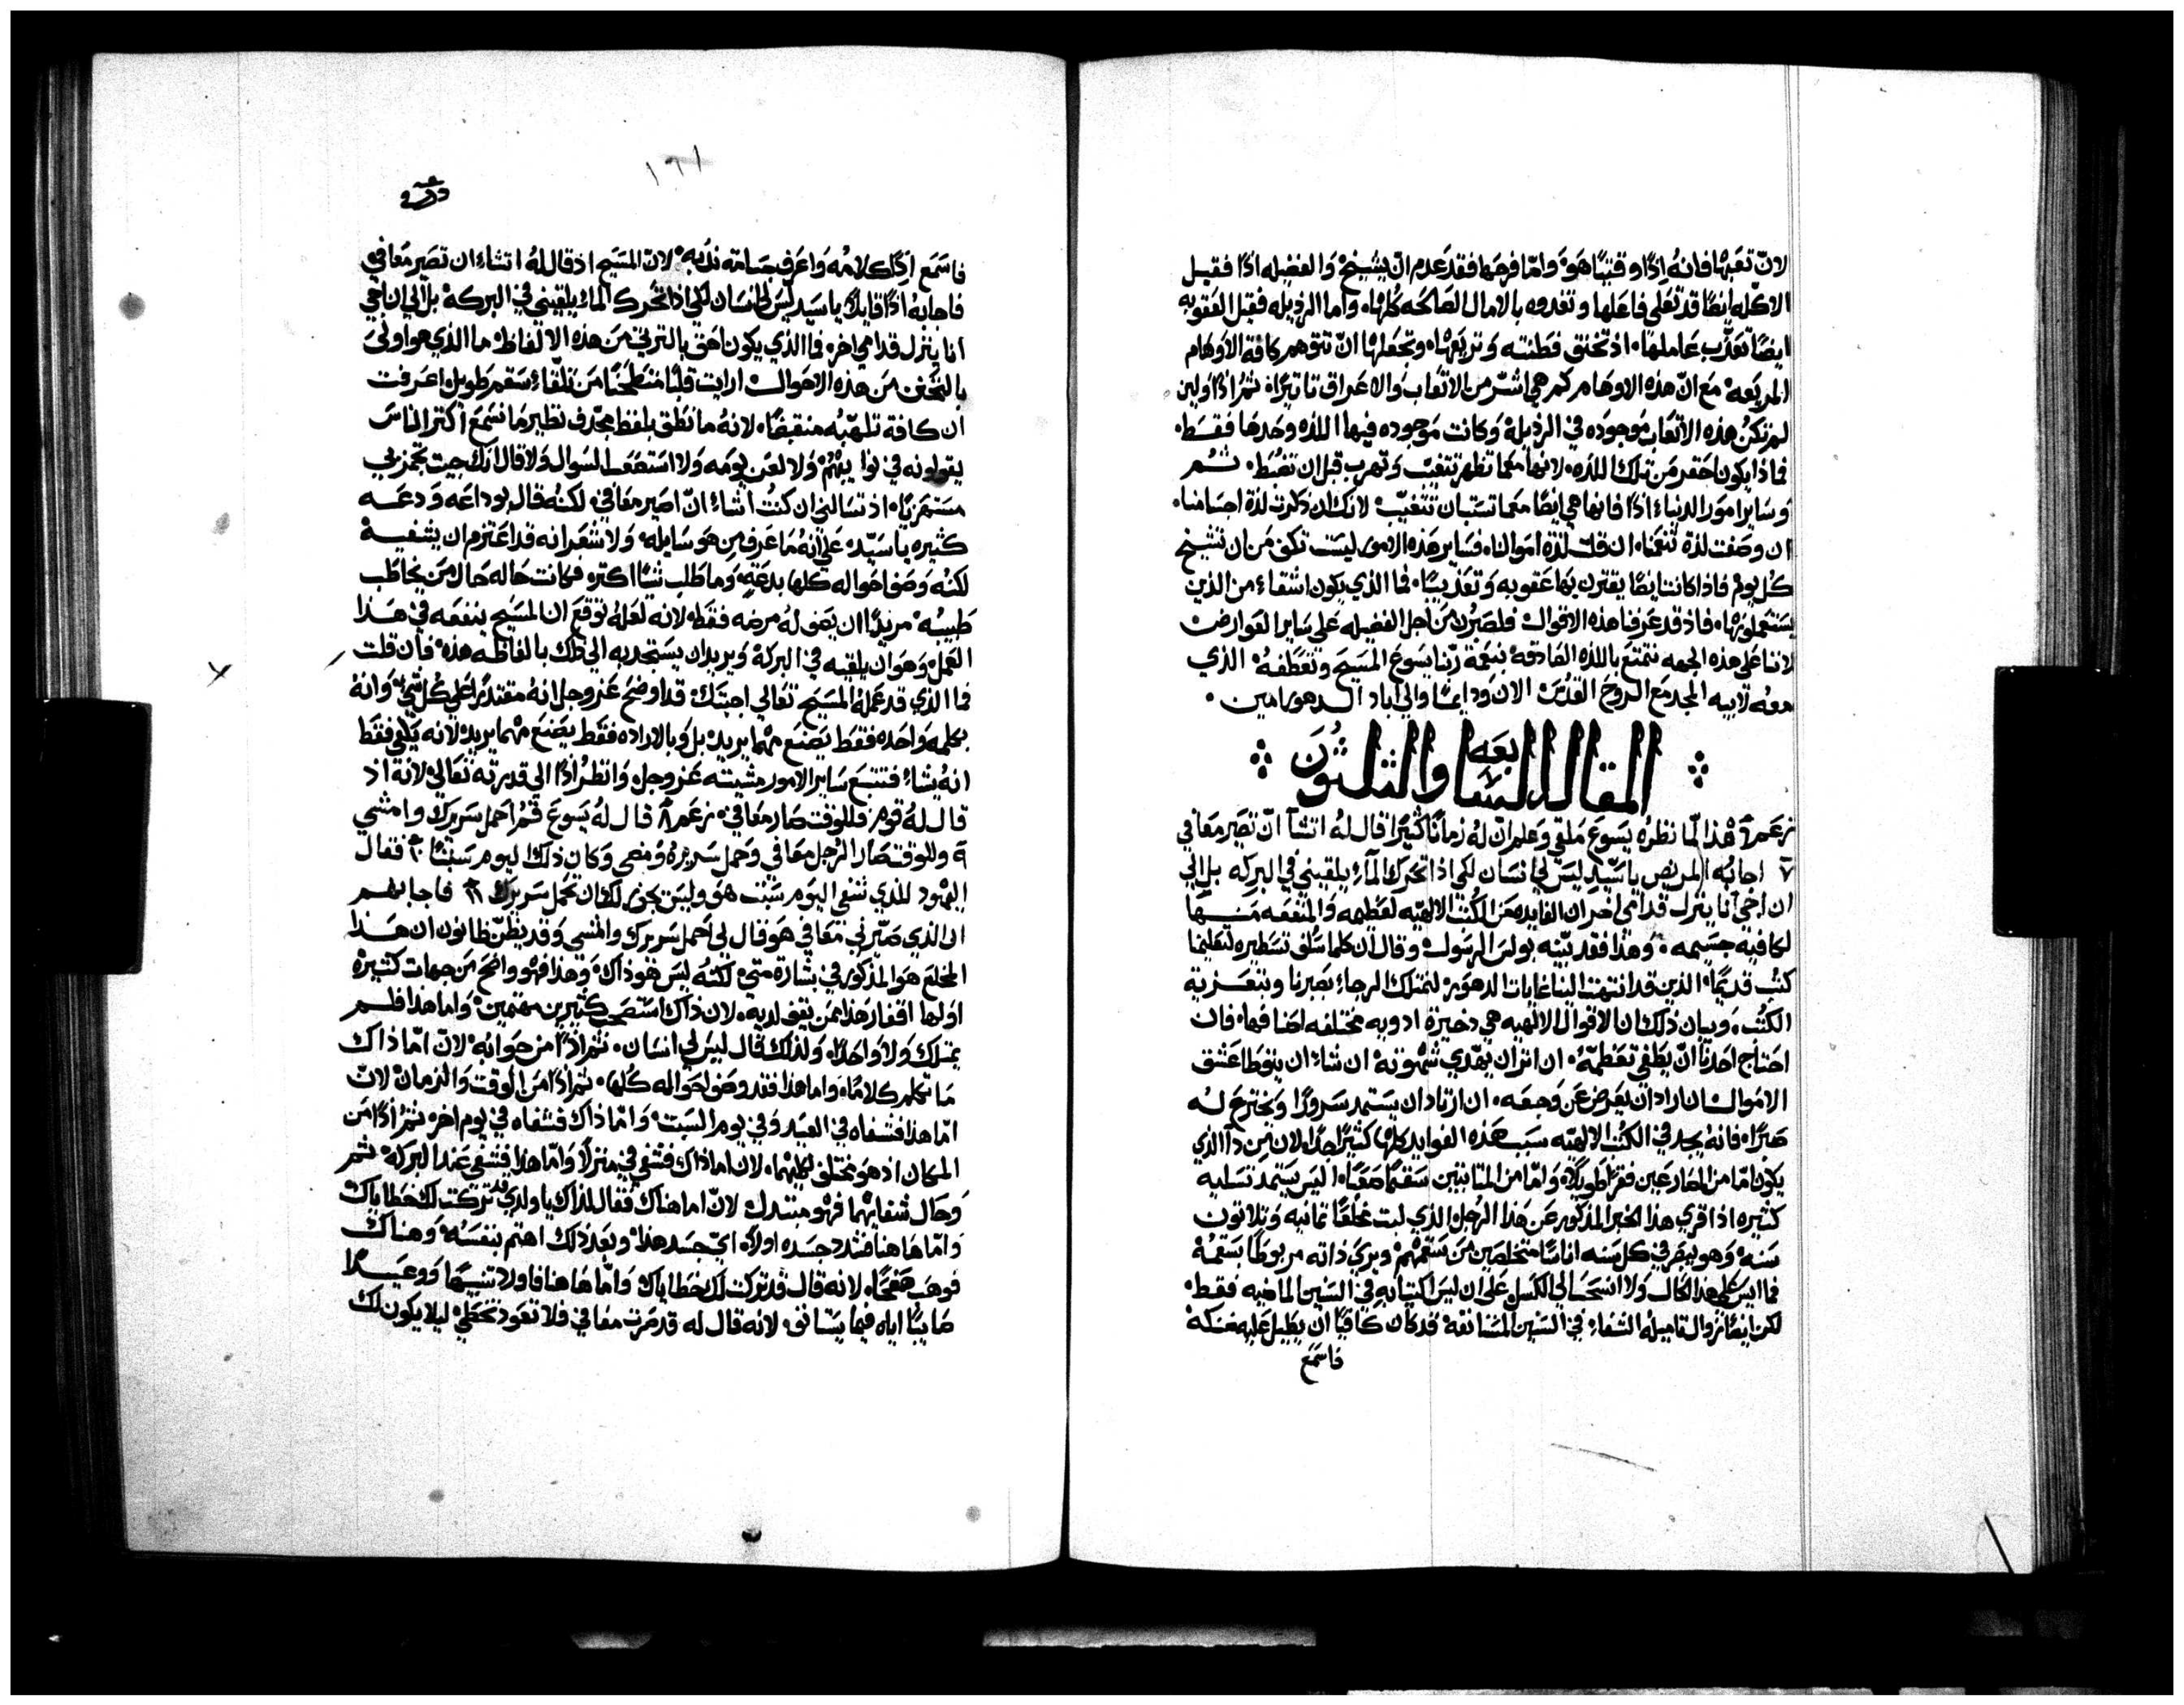 لانّ تعبها فانهُ اذًا وقتيًا هوَ وامّا فرحها فقد عدم انّ يشيخ والفضيله اذًا فقبل
الاكله ايضًا قد تعلي فاعلها وتغدوه بالامال الصالحه كلها، واما الرذيله فقبل العقوبه
ايضًا تعذّب عاملها، اذ تخنق فطنته وتربعها، وتجعلها انّ تتوهم كافة الاوهام
المربعه مع انّ هذه الاوهام كم هي اشّر من الاتعاب والاعراق تاتيرًا، ثم اذا ولين
لم تكن هذه الاتعاب موجوده في الرذيلة وكانت موجوده فيها اللذه وحدها فقط،
فماذا يكون احقر من تلك اللذه، لانها معما تظهر تتغيّب وتهرب قبل ان تضبط، ثم
وساير امور الدنيا اذًا فانها هي ايضًا معما تستبان تتغيّب لانك ان ذكرت لذة اجسامنا،
ان وصفت لذة تنعمنا، ان قلت لذة اموالنا، فساير هذه الامور ليست تكف من ان تشيخ
كل يوم فاذا كانت ايضًا يقترن بها عقوبه وتعذيبًا، فما الذي يكون اشقاء من الذين
يستعملونها، فاذ قد عرفنا هذه الاقوال فلنصبرن من اجل الفضيله على ساير العوارض
لاننا على هذه الجهه نتمتع باللذه الصادقه بنعمة ربّنا يسوع المسيح وتعطفهُ الذي
معه لابيه المجد مع الروح القدس الان ودايمًا والي اباد الدهور امين.
المقاله السابعه والثلثون
زعم ٦ هذا لما نظرهُ يسوع ملقي وعلم انّ لهُ زمانًا كثيرًا قال لهُ اتشآ انّ تصير معافي
٧ اجابهُ المريض يا سيّد ليس لي انسان لكي اذا تحرك المآء يلقيني في البركه بل الي
ان اجي انا ينزل قدامي اخر ان الفايده من الكُتب الالهيه لعظيمه والمنفعه منها
لكافيه جسيمه، وهذا فقد بيّنه بولس الرسول وقال ان كلما سلف تسطيره لتعليمنا
كتب قديمًا، الذين قد انتهت الينا غايات الدهور، لنمتلك الرجاء بصبرنا وبتعزية
الكتب، وبيان ذلك ان الاقوال الالهيه هي ذخيرة ادويه مختلفه اصنافها، فان
احتاج احدنا انّ يطفي تعظمهُ، ان اثر ان يهدي شهوته، ان شاء ان يتوطا عشق
الاموال، ان اراد ان يعرض عن وجعه، ان ارتاد ان يستمد سرورًا ويخترع له
صبرًا، فانه يجد في الكتب الالهيه سبب هذه الفوايد كلها كثيرًا جدًا، لان من ذا الذي
يكون امّا من المصارعين فقرًا طويلاً، وامّا من المتانيين سقمًا صعبًا، اليس يستمد تسليه
كثيره اذا قري هذا الخبر المذكور عن هذا الرجل الذي لبت مخلعًا ثمانيه وثلاثون
سنة، وهو يبصر في كل سنه اناسًا متخلصين من سقمهم ويري ذاته مربوطًا بسقمهُ
فما ايس على هذا الحال ولا انسحب الي الكسل على ان ليس اكتيابه في السنين الماضيه فقط،
لكن ايضًا زوال تاميله الشفاء في السنين المستانفه قد كان كافيًا ان يطيل عليه ضنكه
فاسمع
١٦١
فاسمع اذًا كلامه واعرف جسامة ندبه، لانّ المسيح اذ قال لهُ اتشاء ان تصير معافي
فاجابهُ اذًا قايلاً يا سيد ليس لي انسان لكي اذا تحرك الماء يلقيني في البركه بل الي ان اجي
انا ينزل قدامي اخر، فما الذي يكون احق بالترثي من هذه الالفاظ، ما الذي هو اولي
بالتحنن من هذه الاحوال، ارايت قلبًا منطحنًا من تلقاء سقم طويل، اعرفت
ان كافة تلهّبهُ منقبضًا، لانهُ ما نطق بلفظ بحدف نظير ما نسمع اكثر الناس
يقولونه في نوايبهم، ولا لعن يومه ولا استصعب السوال ولا قال انك جيت تجمزبي
مستهزيًا، اذ تسالني ان كنتُ اشاء انّ اصير معافي، لكنه قال بوداعه ودعه
كثيره يا سيّد، على انهُ ما عرف من هو سايله، ولا شعر انه قد اعتزم ان يشفيه
لكنه وصف احواله كلها بدعته، وما طلب شيًا اكتر، فكانت حاله حال من يخاطب
طبيبهُ مريدًا ان يصف لهُ مرضه فقط، لانه لعلهُ توقع ان المسيح ينفعه في هذا
العمل، وهو ان يلقيه في البركة ويريد ان يستجدبه الي ذلك بالفاظه هذه، فان قلت
فما الذي قد عمله المسيح تعالي اجبتك، قد اوضح عز وجل انه مقتدرًا على كل شي وانهُ
بكلمه واحده فقط يصنع مهما يريد، بل وبالاراده فقط يصنع مهما يريد، لانه يكفي فقط
انهُ يشاء فتتبع ساير الامور مشيته عز وجل، وانظر اذًا الي قدرته تعالي، لانه اذ
قال لهُ قوم فللوقت صار معافي، زعم ٨ قال لهُ يسوع قم احمل سريرك وامشي
٩ وللوقت صار الرجل معافي وحمل سريره ومضي وكان ذلك اليوم سبتًا ١٠ فقال
اليهود للذي شفي اليوم سبت هو وليس يجوز لك ان تحمل سريرك ١١ فاجابهم
ان الذي صيّرني معافي هو قال لي احمل سريرك وامشي وقد يظنّ ظانون ان هذا
المخلع هو المذكور في بشارة متي، لكنه ليس هو ذاك، وهذا فهو واضح من جهات كثيره
اولها افتقار هذا ممن يقف لديه، لان ذاك استصحب كثيرين مهتمين، واما هذا فلم
يمتلك ولا واحدًا، ولذلك قال ليس لي انسان، ثم اذًا من جوابهُ لانّ امّا ذاك
ما تكلم كلامًا، واما هذا فقد وصف احواله كلها، ثم اذا من الوقت والزمان لانّ
امّا هذا فشفاه في العيد وفي يوم السبت، وامّا ذاك فشفاه في يوم اخر، ثم اذًا من
المكان اذ هو مختلف لكليهما، لان اما ذاك فشفي في منزل، وامّا هذا فشفي عند البركه، ثم
وحال شفايهما فهو متبدل، لانّ اما هناك فقال لذاك يا ولدي قد تركت لك خطاياك
وامّا هاهنا فشدد جسده اولاً، ايّ جسد هذا، وبعد ذلك اهتم بنفسه، وهناك
فوهب صفحًا، لانه قال قد تركت لك خطاياك، وامّا هاهنا فاولاد تنبيهًا ووعيدًا
صاينًا اياه فيما يستانف، لانه قال له قد صرت معافي فلا تعود تخطي، ليلا يكون لك